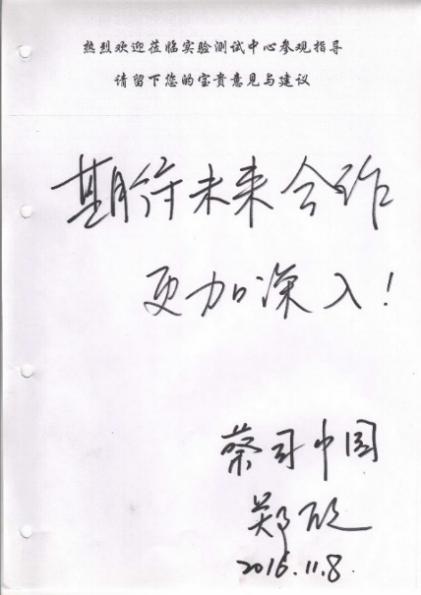 热烈欢迎莅临实验测试中心参观指导
请留下您的宝贵意见与建议
期待未来合作
更加深入！
蔡司中国
郑欣
2016.11.8